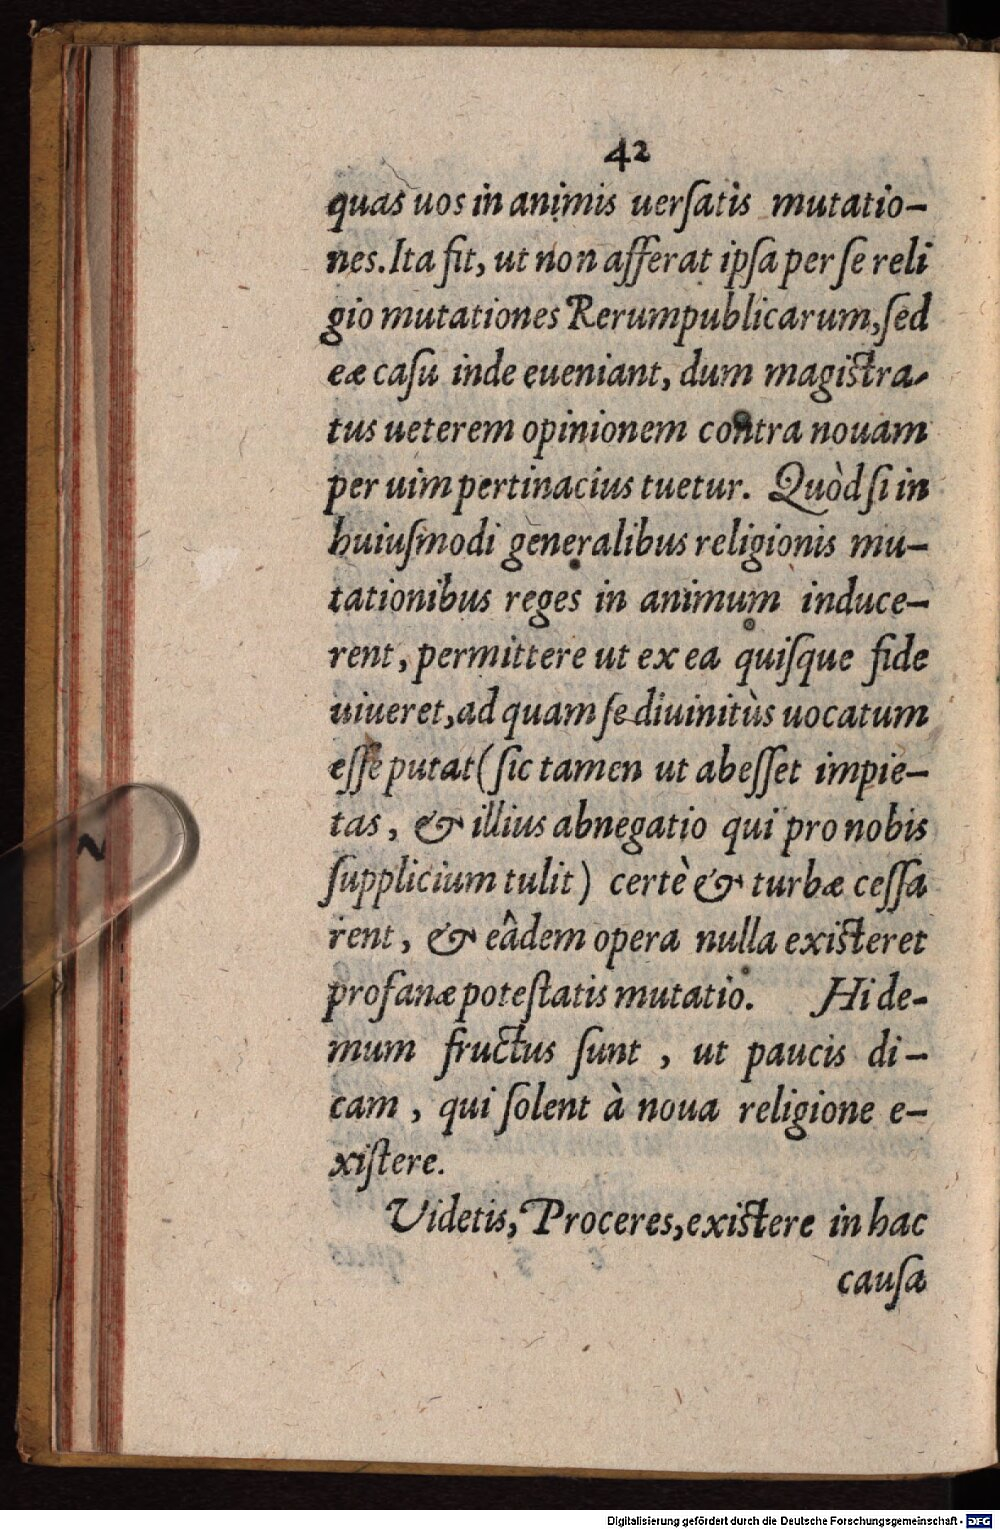 42
quas uos in animis uersatis mutatio-
nes. Ita fit, ut non afferat ipsa per se reli
gio mutationes Rerumpublicarum, sed
eæ casu inde eueniant, dum magistra-
tus ueterem opinionem contra nouam
per uim pertinacius tuetur. Quòd si in
huiusmodi generalibus religionis mu-
tationibus reges in animum induce-
rent, permittere ut ex ea quisque fide
uiueret, ad quam se diuinitùs uocatum
esse putat (sic tamen ut abesset impie-
tas, & illius abnegatio qui pro nobis
supplicium tulit) certè & turbæ cessa
rent, & eâdem opera nulla existeret
profanæ potestatis mutatio. Hi de-
mum fructus sunt, ut paucis di-
cam, qui solent à noua religione e-
xistere.
Videtis, Proceres, existere in hac
causa
Digitalisierung gefördert durch die Deutsche Forschungsgemeinschaft - DFG